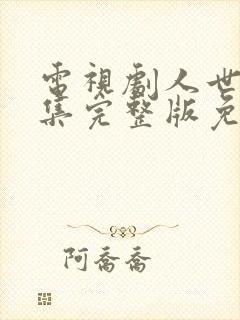 電視劇人世
集完整版免
阿喬喬